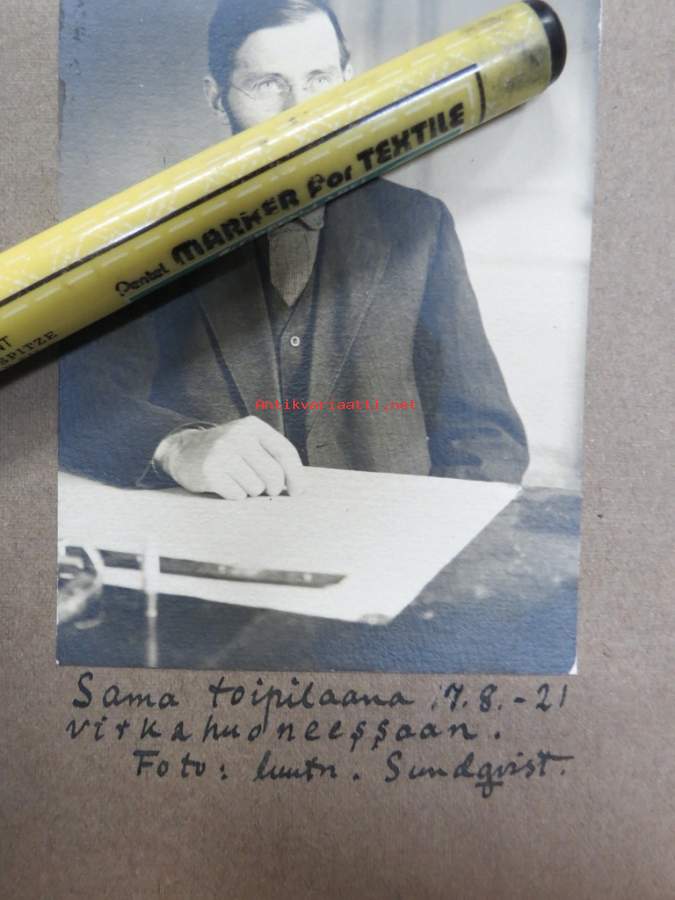 Pentel MARKER for TEXTILE
NT
SPITZE
Antikvariaatti.net
Sama toipilaana 17.8.-21
virkahuoneessaan.
Foto: luutn. Sundqvist.